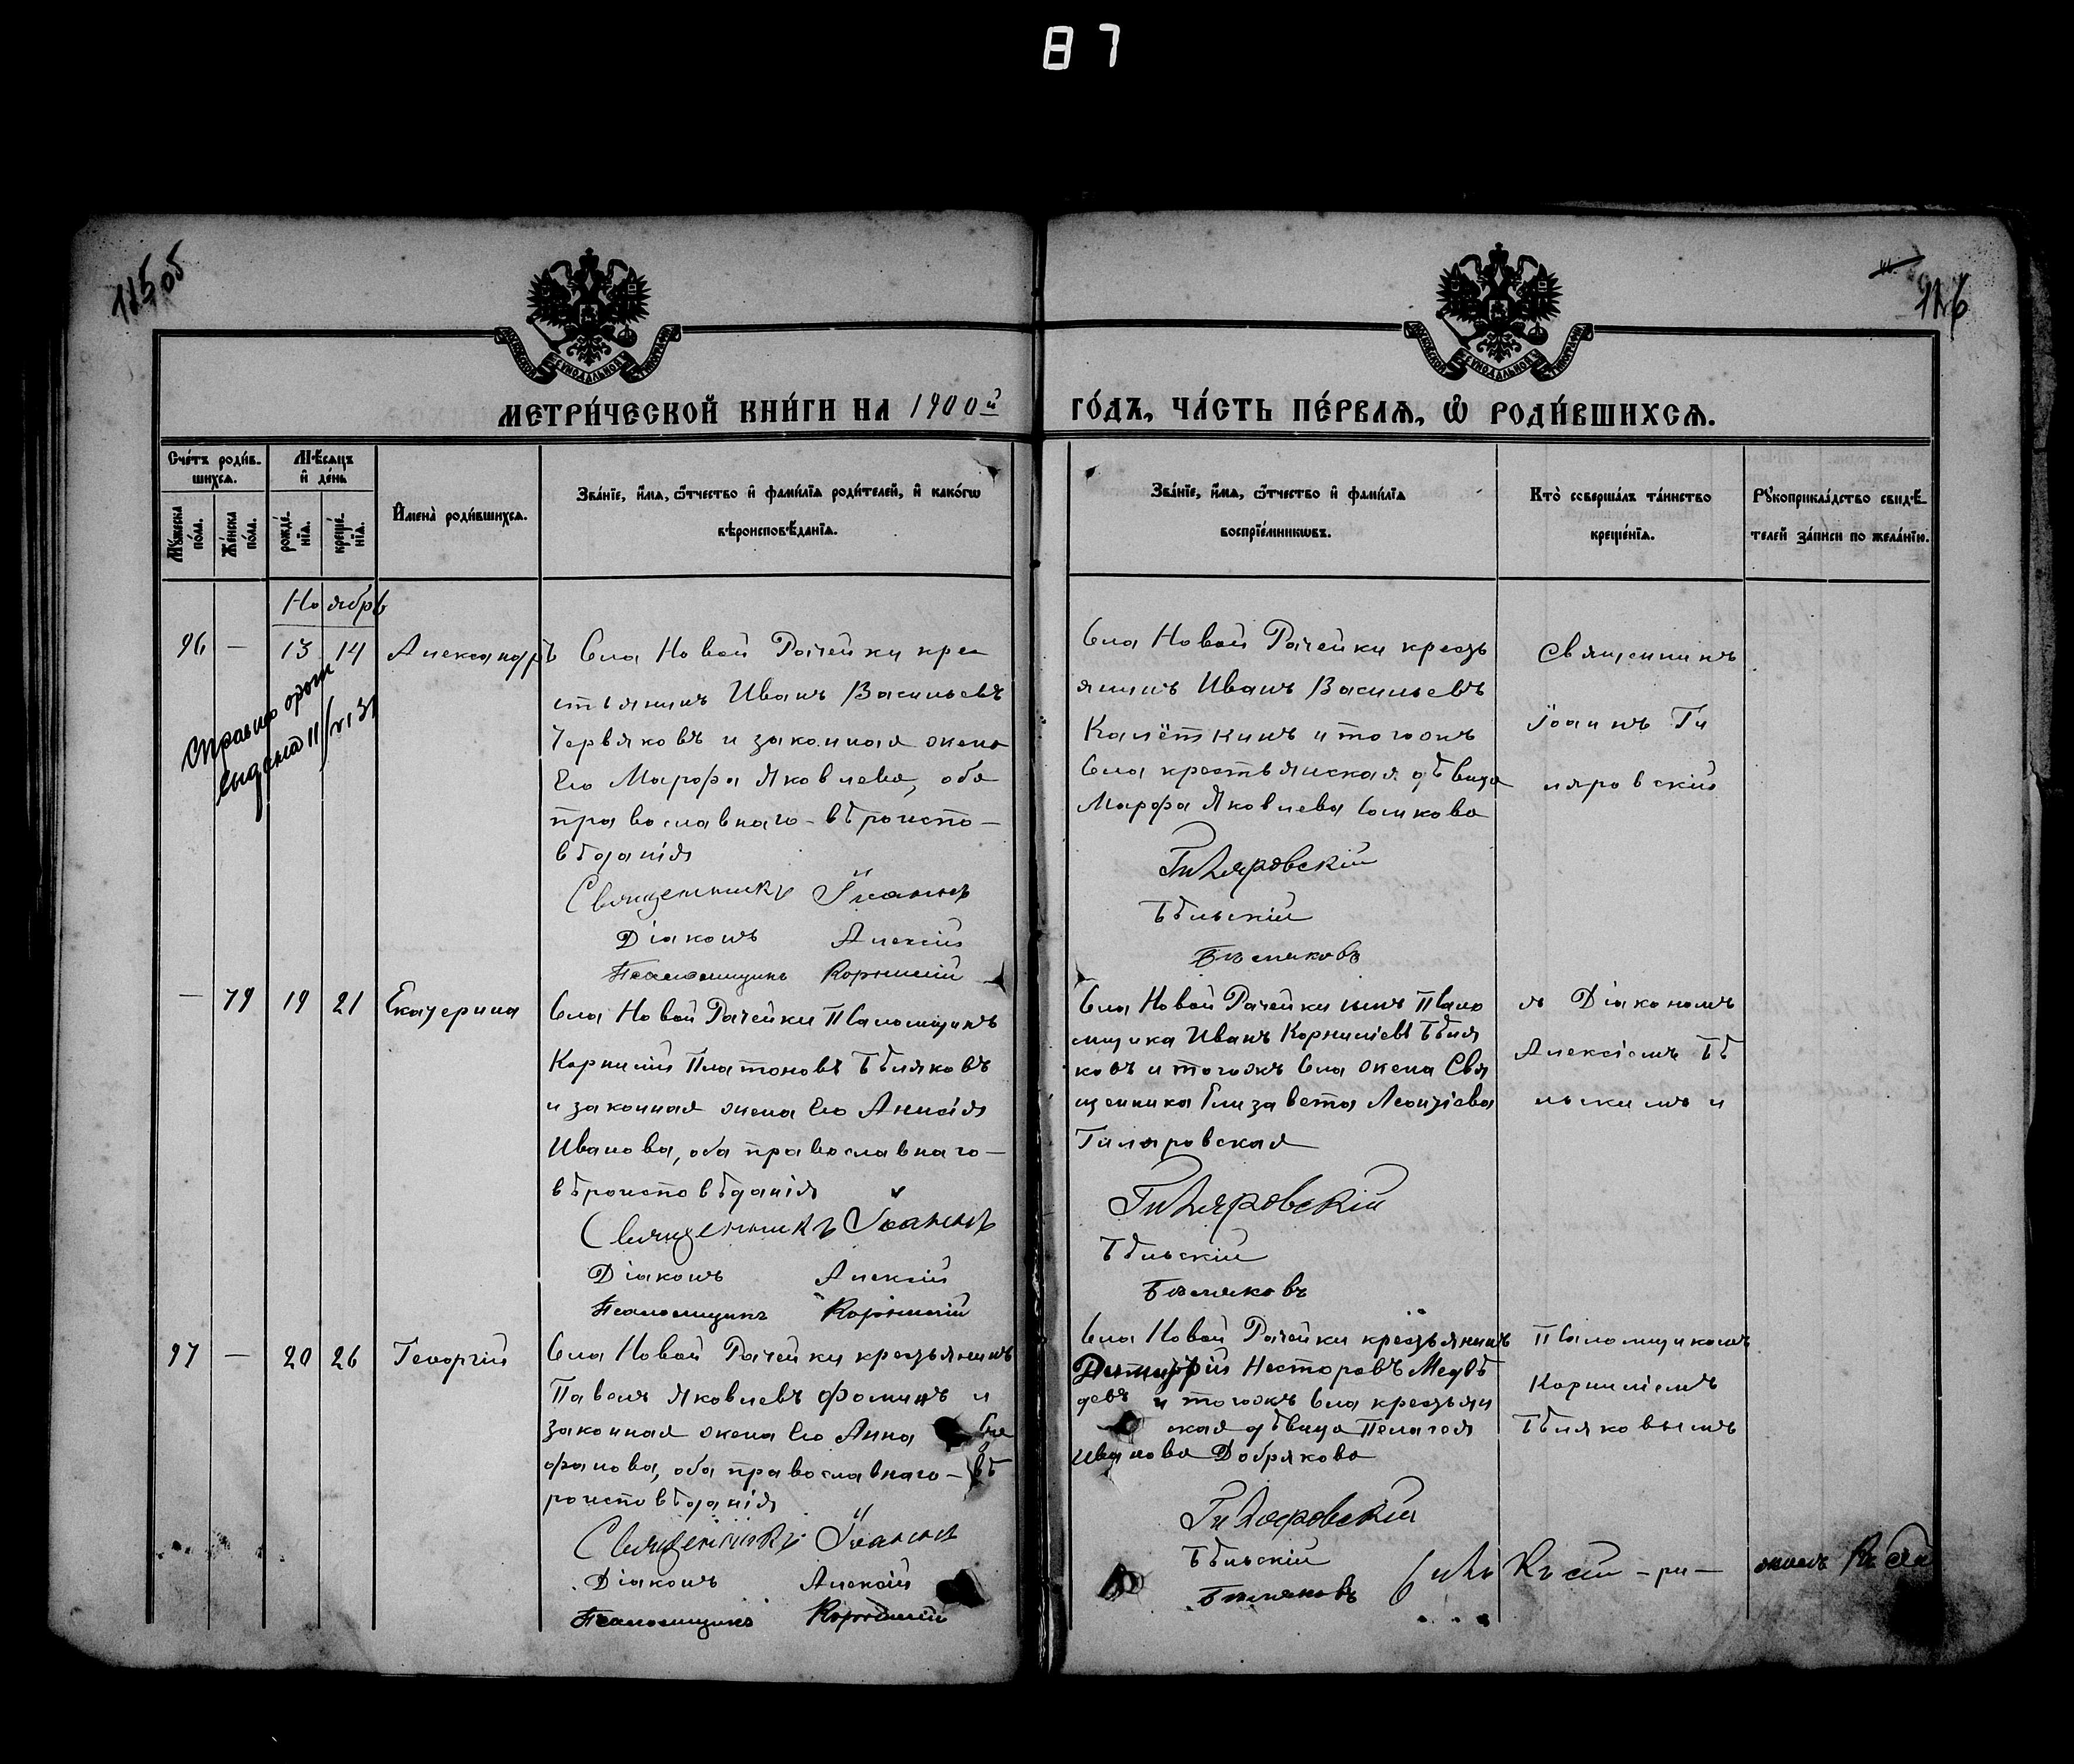 87
115 об
126
МЕТРИ́ЧЕСКОЙ КНИ́ГИ НА 1900й
ГО́ДЪ, ЧА́СТЬ ПЕ́РВАѦ, Ѡ҆ РОДИ́ВШИХСѦ.
Сче́тъ роди́в-
шихсѧ.
Мꙋ́жеска по́ла.
Же́нска по́ла.
Мѣ́сѧцъ
и҆ де́нь
рожде́-
нїѧ.
креще́-
нїѧ.
И҆мена̀ роди́вшихсѧ.
Зва́нїе, и҆́мѧ, ѻ҆́тчество и҆ фами́лїѧ роди́телей, и҆ како́гѡ
вѣроисповѣ́данїѧ.
Зва́нїе, и҆́мѧ, ѻ҆́тчество и҆ фами́лїѧ
воспрїе́мникѡвъ.
Кто̀ соверша́лъ та́инство
креще́нїѧ.
Рꙋкоприкла́дство свидѣ́-
телей за́писи по жела́нїю.
Ноябрь
96 — 13 14 Александръ
Села Новой Рачейки кре
стьянинъ Иванъ Васильевъ
Червяковъ и законная жена
Его Марфа Яковлева, оба
православнаго вѣроиспо-
вѣданія
Священникъ Іоаннъ
Діаконъ Алексій
Псаломщикъ Корнилій
Села Новой Рачейки кресть
янинъ Иванъ Васильевъ
Калёткинъ и тогожъ
Села крестьянская дѣвица
Марфа Яковлева
Гиляровскій
Бѣльскій
Бѣляковъ
Священникъ
Іоаннъ Ги
ляровскій
— 79 19 21 Екатерина
Села Новой Рачейки Псаломщикъ
Корнилій Платоновъ Бѣляковъ
и законная жена Его Анисія
Иванова, оба православнаго
вѣроисповѣданія
Священникъ Іоаннъ
Діаконъ Алексій
Псаломщикъ Корнилій
Села Новой Рачейки сынъ Псало
мщика Иванъ Корниліевъ Бѣля
ковъ и тогожъ Села жена Свя
щенника Елизавета Леонтіева
Гиляровская
Гиляровскій
Бѣльскій
Бѣляковъ
съ Діакономъ
Алексіемъ Бѣ
льскимъ и
97 — 20 26 Георгій
Села Новой Рачейки крестьянинъ
Павелъ Яковлевъ Фоминъ и
законная жена Его Анна
фанова, оба православнаго вѣ
роисповѣданія
Священникъ Іоаннъ
Діаконъ Алексій
Псаломщикъ Корнилій
Села Новой Рачейки крестьянинъ
Димитрій Несторовъ Медвѣ
девъ и тогожъ Села крестьян
ская дѣвица Пелагея
Иванова Добрякова
Гиляровскій
Бѣльскій
Бѣляковъ
Псаломщикомъ
Корниліемъ
Бѣляковымъ